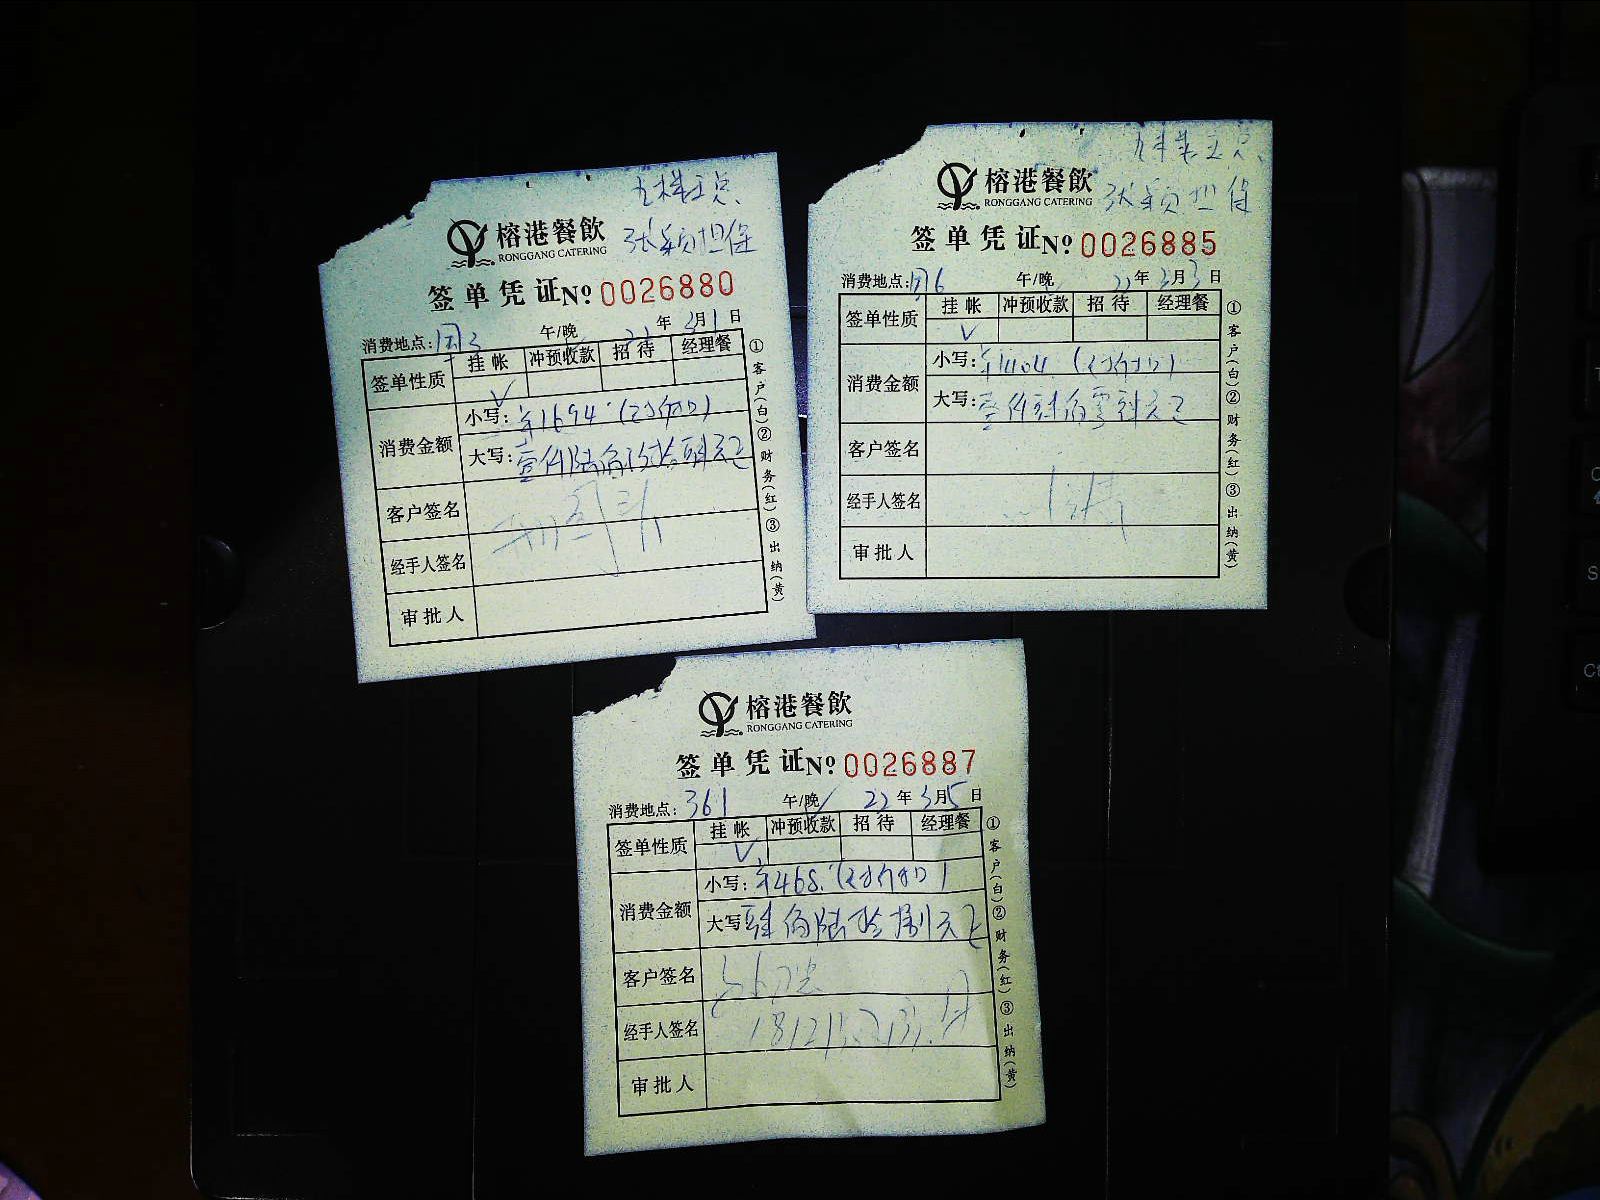 张颖担保
榕港餐飲
RONGGANG CATERING
签单凭证№ 0026880
消费地点: 午/晚 22年3月1日
签单性质 挂帐 冲预收款 招待 经理餐
√
消费金额
小写: ¥1694.(已打折)
大写: 壹仟陆佰玖拾肆元正
客户签名
经手人签名
审批人
①客户(白)②财务(红)③出纳(黄)
张颖担保
榕港餐飲
RONGGANG CATERING
签单凭证№ 0026885
消费地点: 午/晚 22年3月3日
签单性质 挂帐 冲预收款 招待 经理餐
√
消费金额
小写: ¥1404.
大写: 壹仟肆佰零肆元正
客户签名
经手人签名
审批人
①客户(白)②财务(红)③出纳(黄)
榕港餐飲
RONGGANG CATERING
签单凭证№ 0026887
消费地点: 361 午/晚 22年3月5日
签单性质 挂帐 冲预收款 招待 经理餐
√
消费金额
小写: ¥468.
大写 肆佰陆拾捌元正
客户签名
经手人签名
审批人
①客户(白)②财务(红)③出纳(黄)